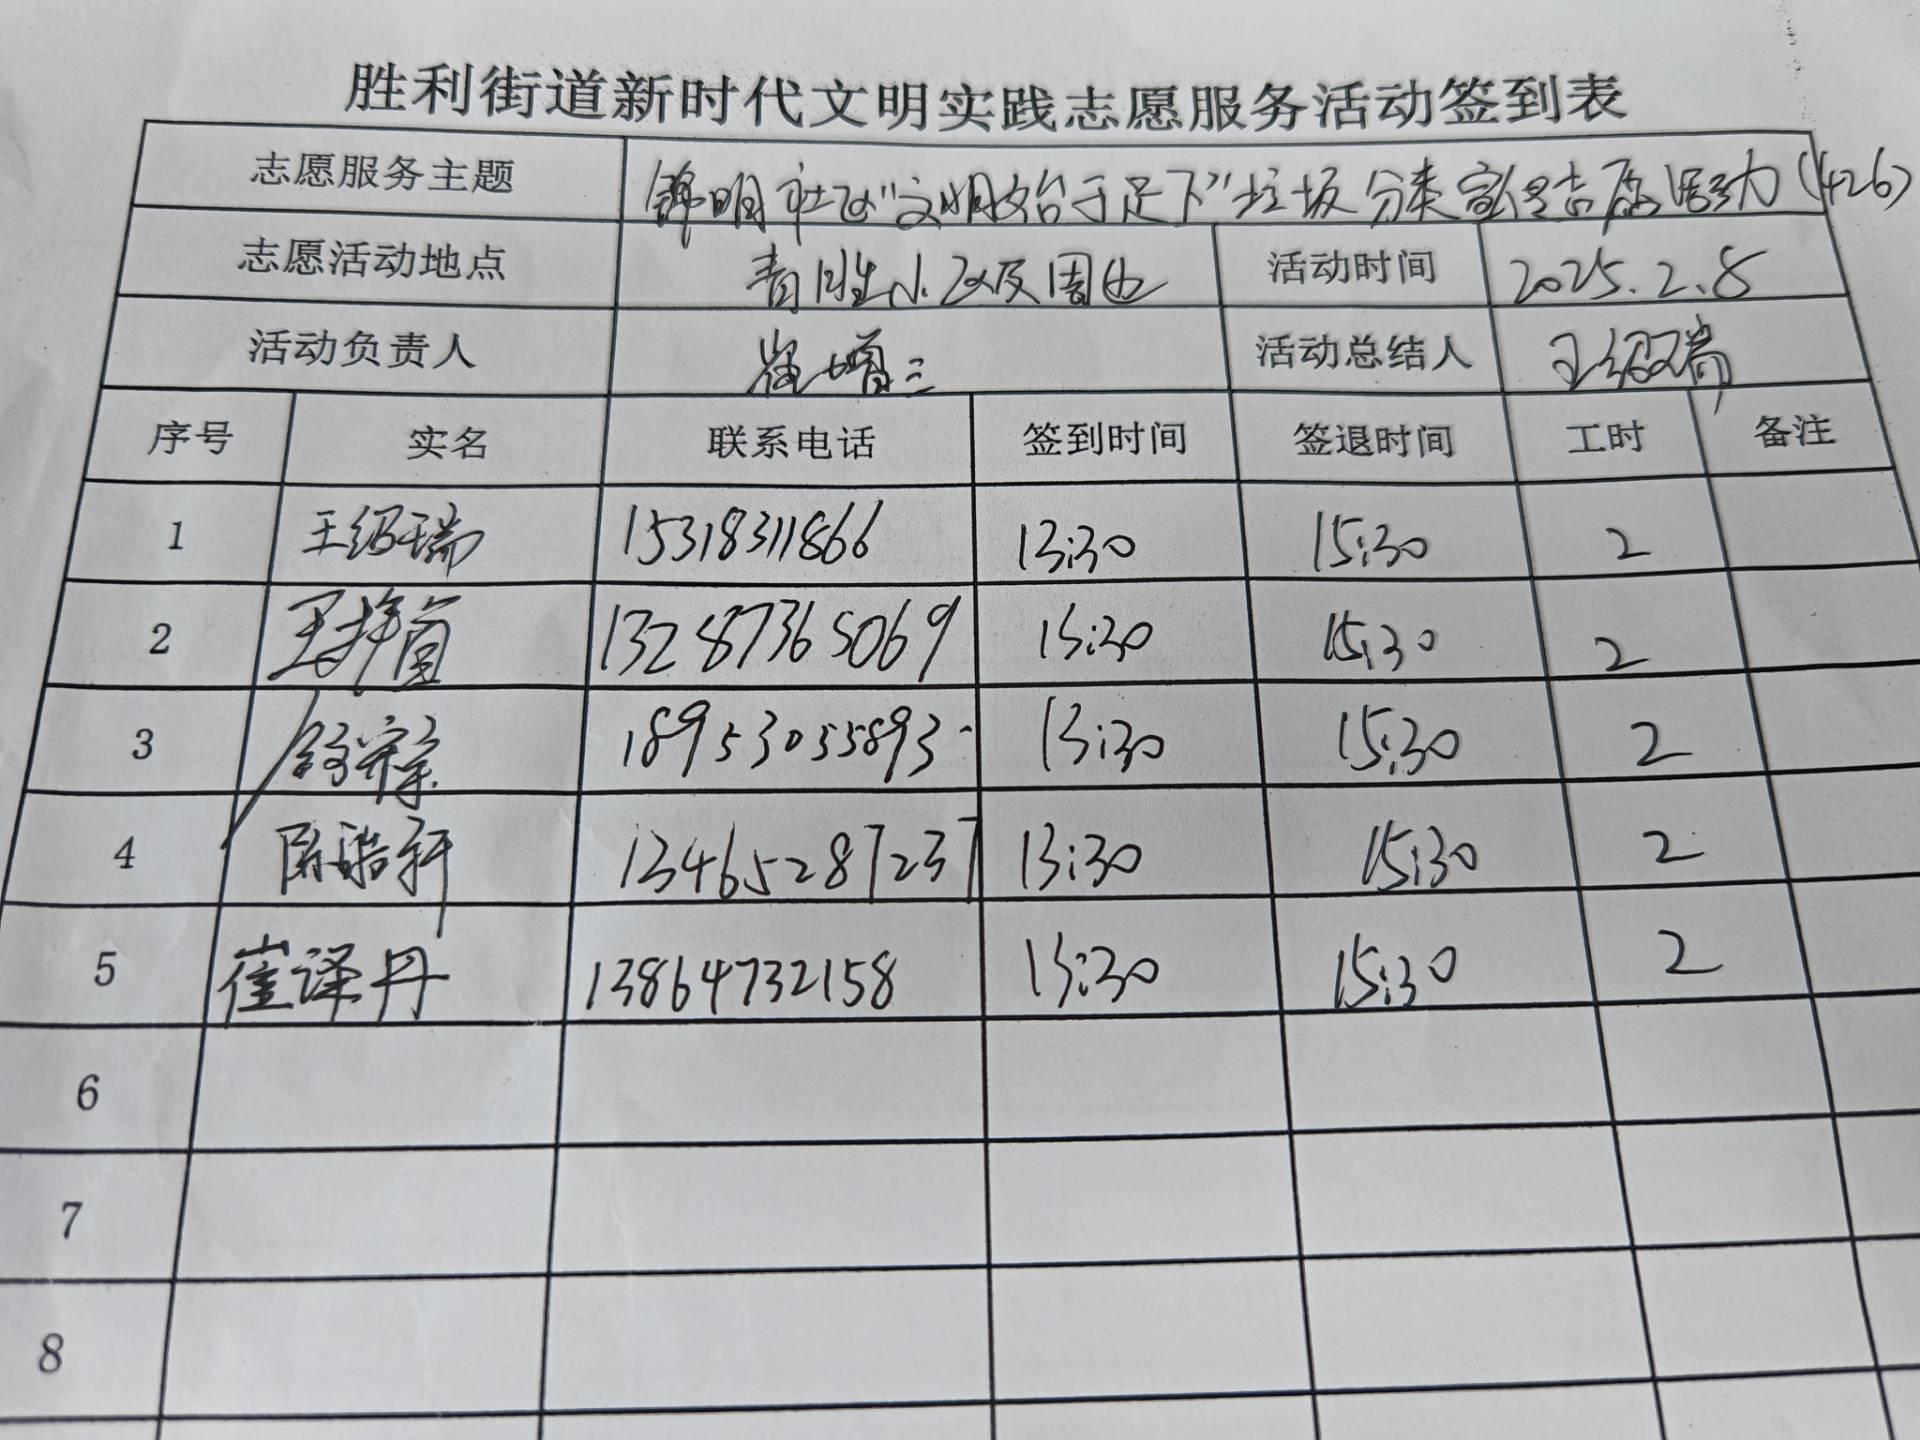 胜利街道新时代文明实践志愿服务活动签到表
志愿服务主题 锦明社区"文明始于足下"垃圾分类 志愿活动(426)
志愿活动地点 青胜小区及周边 活动时间 2025.2.8
活动负责人 崔增三 活动总结人 王绍瑞
序号 实名 联系电话 签到时间 签退时间 工时 备注
1 王绍瑞 15318311866 13:30 15:30 2
2 13287365069 13:30 15:30 2
3 18953055893 13:30 15:30 2
4 陈皓轩 13465287237 13:30 15:30 2
5 崔译丹 13864732158 13:30 15:30 2
6
7
8